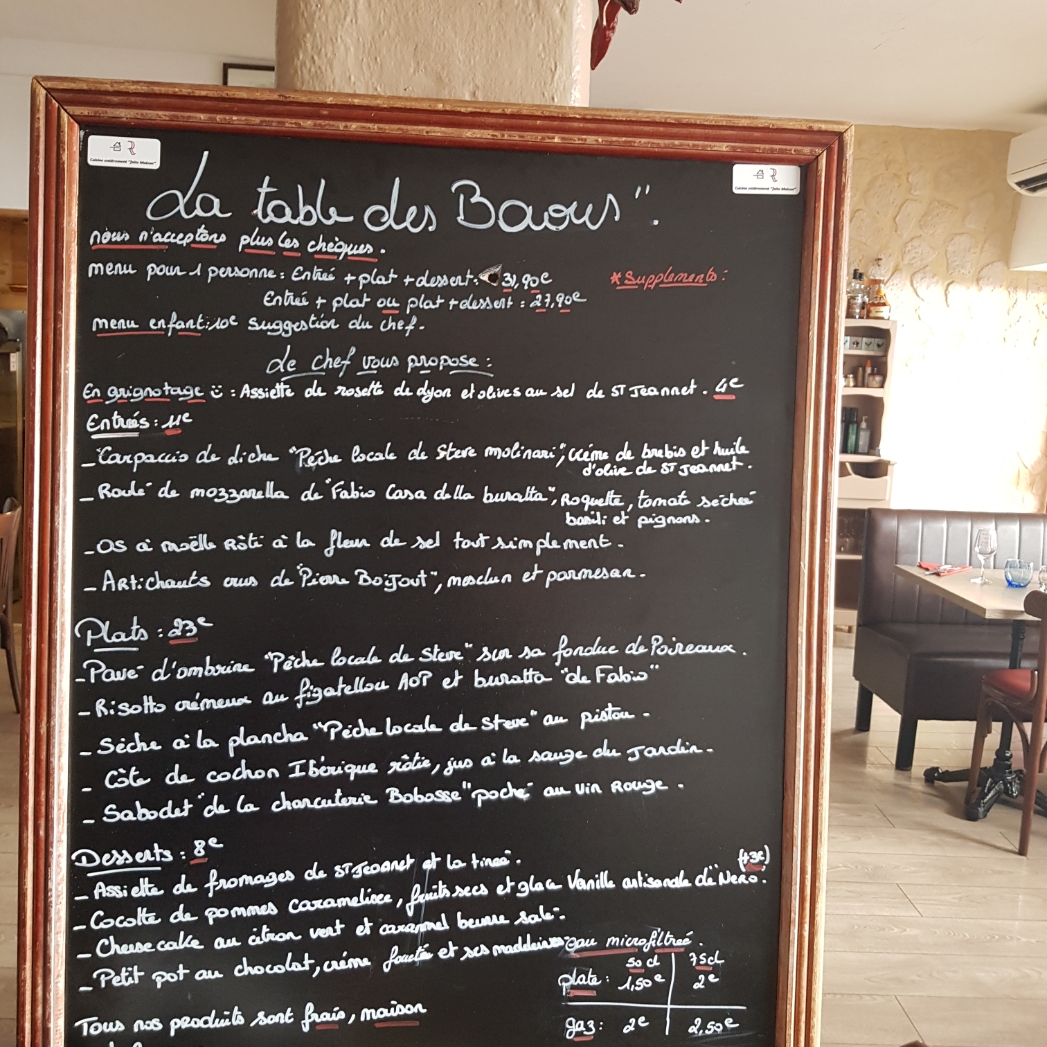 Cuisine entièrement "faite Maison"
Cuisine entièrement "faite Maison"
La table des Baous".
nous n'acceptons plus les chèques.
menu pour 1 personne : Entrée + plat + dessert : 31,90€
*Supplements :
Entrée + plat ou plat + dessert : 27,90€
menu enfant : 10€ suggestion du chef.
Le chef vous propose :
En grignotage : Assiette de rosette de Lyon et olives au sel de ST Jeannet. 4€
Entrées : 11€
- Carpaccio de liche "Pêche locale de Steve molinari", crème de brebis et huile
d'olive de ST Jeannet.
- Roulé de mozzarella de "Fabio Casa della buratta", Roquette, tomate sechée
basilic et pignons.
- OS à moëlle Rôti à la fleur de sel tout simplement.
- Artichauts crus de "Pierre", mesclun et parmesan.
Plats : 23€
- Pavé d'ombrine "Pêche locale de Steve" sur sa fondue de Poireaux.
- Risotto crémeux au figatellou AOP et buratta "de Fabio"
- Sèche à la plancha "Pêche locale de Steve" au pistou.
- Côte de cochon Ibérique rôtie, jus à la sauge du Jardin.
- Sabodet "de la charcuterie Bobosse" poché au vin Rouge.
Desserts : 8€
- Assiette de fromages de ST Jeannet et la tinée.
(+3€)
- Cocotte de pommes caramelisée, fruits secs et glace Vanille artisanale di NeRo.
- Cheese cake au citron vert et caramel beurre salé.
- Petit pot au chocolat, crème fouetté et ses madeleines
eau microfiltrée.
50 cl 75cl
plate : 1,50€ 2€
gaz : 2€ 2,50€
Tous nos produits sont frais, maison